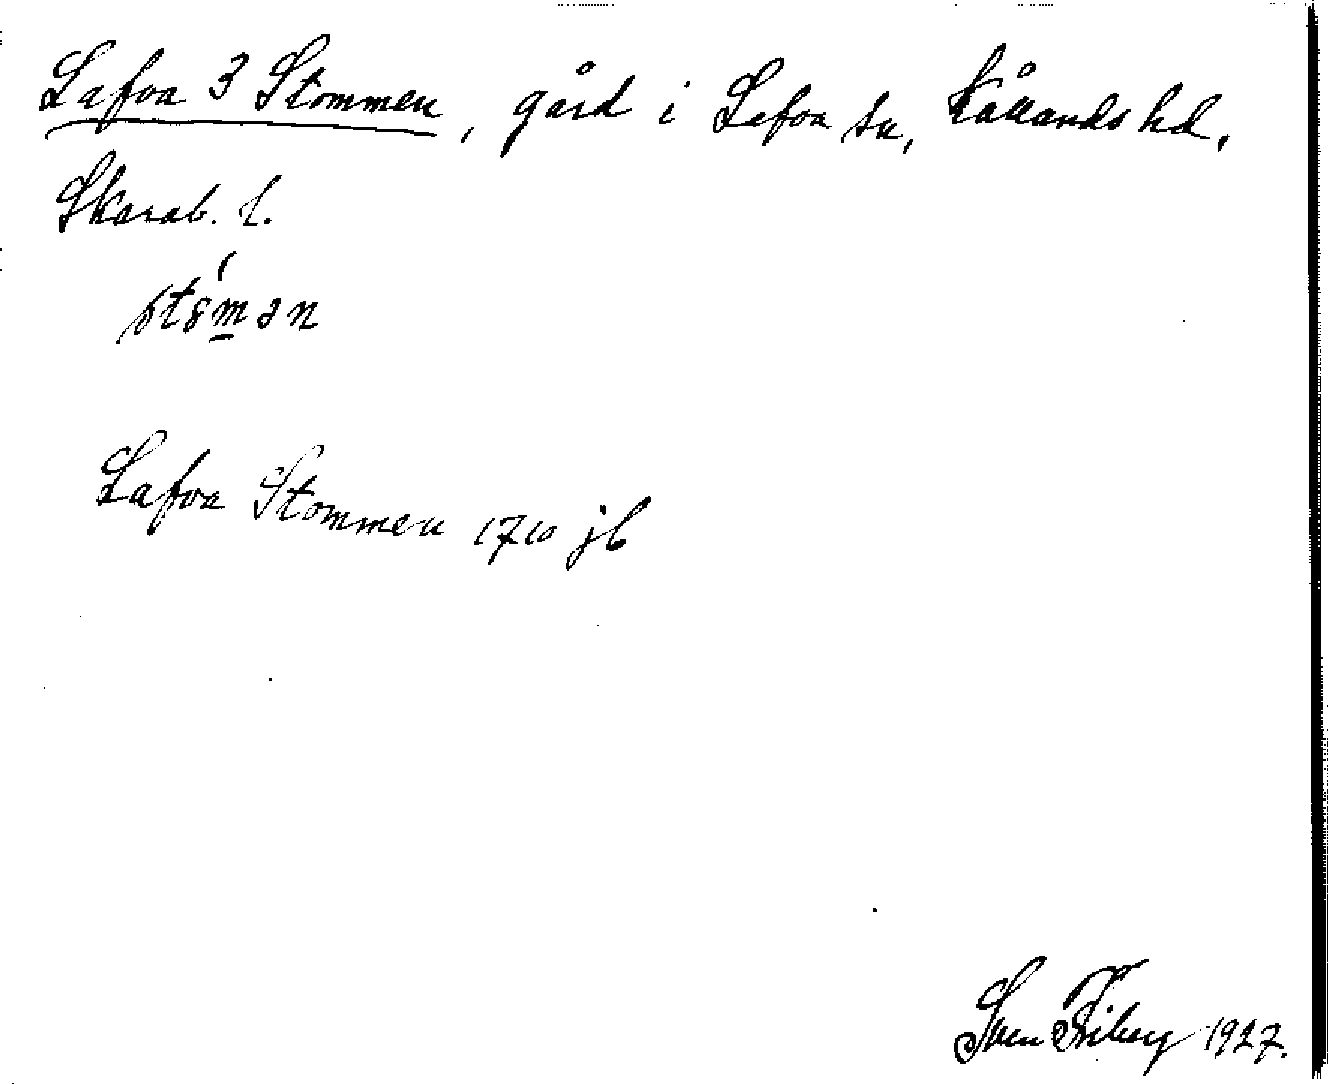 Lafva 3 Stommen, gård i Lafva sn, Kållands hd.
Skarab. l.
Lafva Stommen 1710 jb
Sven Friberg 1927.